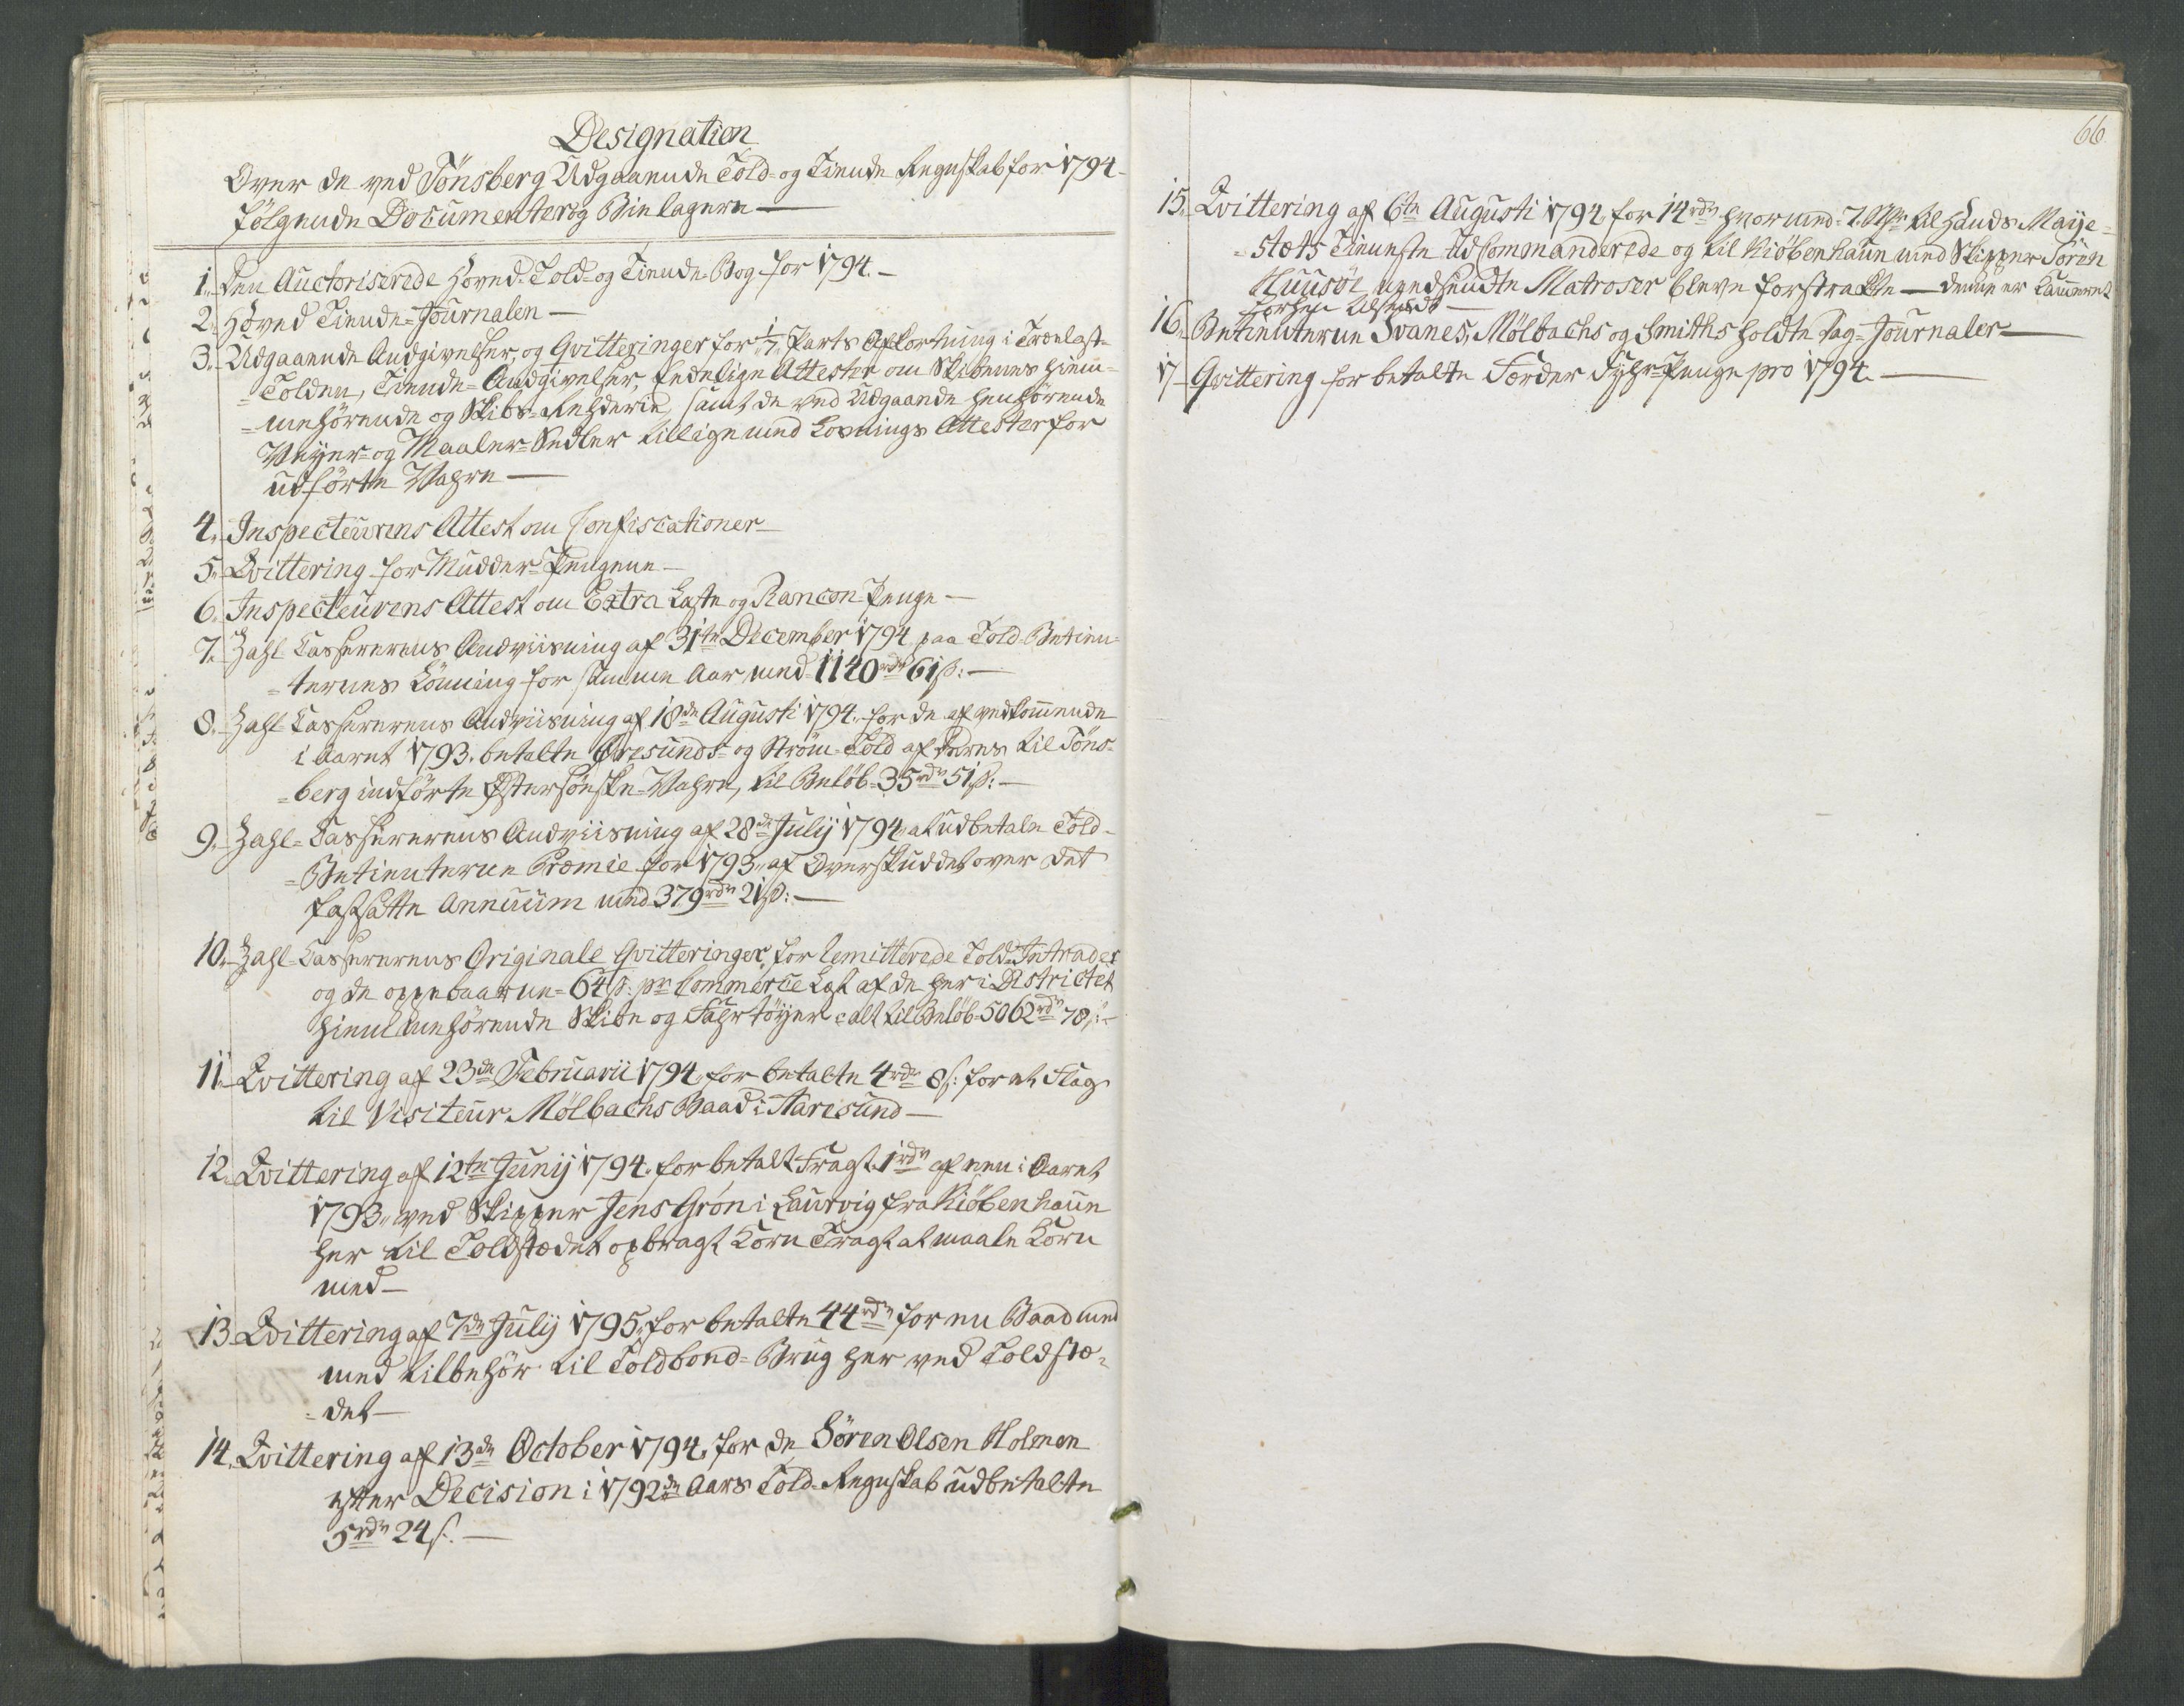 Designation
Over de ved Tönsberg Udgaaende Told- og Tiende Regnskab for 1794
følgende Documenter og Bielagere —
1. Den Auctoriserede Hoved-Told- og Tiende-Bog for 1794. —
2. Hoved Tiende-Journalen —
3. Udgaaende Angivelser, og Qvitteringer for 1/7 Parts Afkortning i Trælast-
=Tolden, Tiende-Angivelser, Edelige Attester om Skibenes hiem-
=mehørende og Skibs-Rehderie, samt de ved Udgaaende henhørende
Veyer- og Maaler-Sedler tillige med Losnings Attester for
udförte Vahre —
4. Inspecteurens Attest om Confiscationer —
5. Qvittering for Mudder-Pengene —
6. Inspecteurens Attest om Extra Laste og Rancon-Penge —
7. Zahl-Casserernens Andviisning af 31te December 1794 paa Told-Betien-
=ternes Lönning for samme Aar med 1140 rdr 61 ß: —
8. Zahl-Casserernens Andviisning af 18de Augusti 1794. for de af vedkommende
i Aaret 1793. betalte Øresunds- og Ström-Told af deres til Töns-
=berg indförte Østersöeske-Vahre, til Belöb 35 rdr 51 ß: —
9. Zahl-Casserernens Andviisning af 28de Julij 1794 at udbetale Told-
=Betienterne Præmie for 1793, af Overskuddet over det
fastsatte Annuum med 379 rdr 21 ß: —
10. Zahl-Casserernens Originale Qvitteringer, for Remitterede Told-Intrader
og de oppebaarne 64 ß: pr Commerce Læst af de her i Districtet
hiemmehørende Skibe og Fahrtöyer alt til Belöb 5062 rdr 78 ß: —
11. Qvittering af 23de Februarii 1794, for betalte 4 rdr 8 ß: for et Flag
til Visiteur Mölbachs Baad i Haresund —
12. Qvittering af 12te Junij 1794. for betalt Fragt 1 rdr af een i Aaret
1793 ved Skipper Jens Grön i Laurvig fra Kiöbenhaun
her til Toldstædet opbragt Korn Tragt at maale Korn
med —
13. Qvittering af 7de Julij 1795, for betalte 44 rdr for en Baad med
med tilbehör til Toldbond-Brug her ved Toldstæ-
=det —
14. Qvittering af 13de October 1794, for de Sören Olsen Holmen
efter Decision i 1792de Aars Told-Regnskab udbetalte
5 rdr 24 ß. —
66
15. Qvittering af 6te Augusti 1794, for 14 rdr hvormed 7. til Hands Maije-
=stæts Tieneste udcommanderede og til Kiöbenhaun med Skipper Sören
Huusöe nedsendte Matroser bleve forstrakte — denne er Cammeret
forhen tilsendt —
16. Betienterne Svanes, Mölbachs og Smiths holdte Dag-Journaler —
17. Qvittering for betalte Færder Fyhr-Penge pro 1794. —